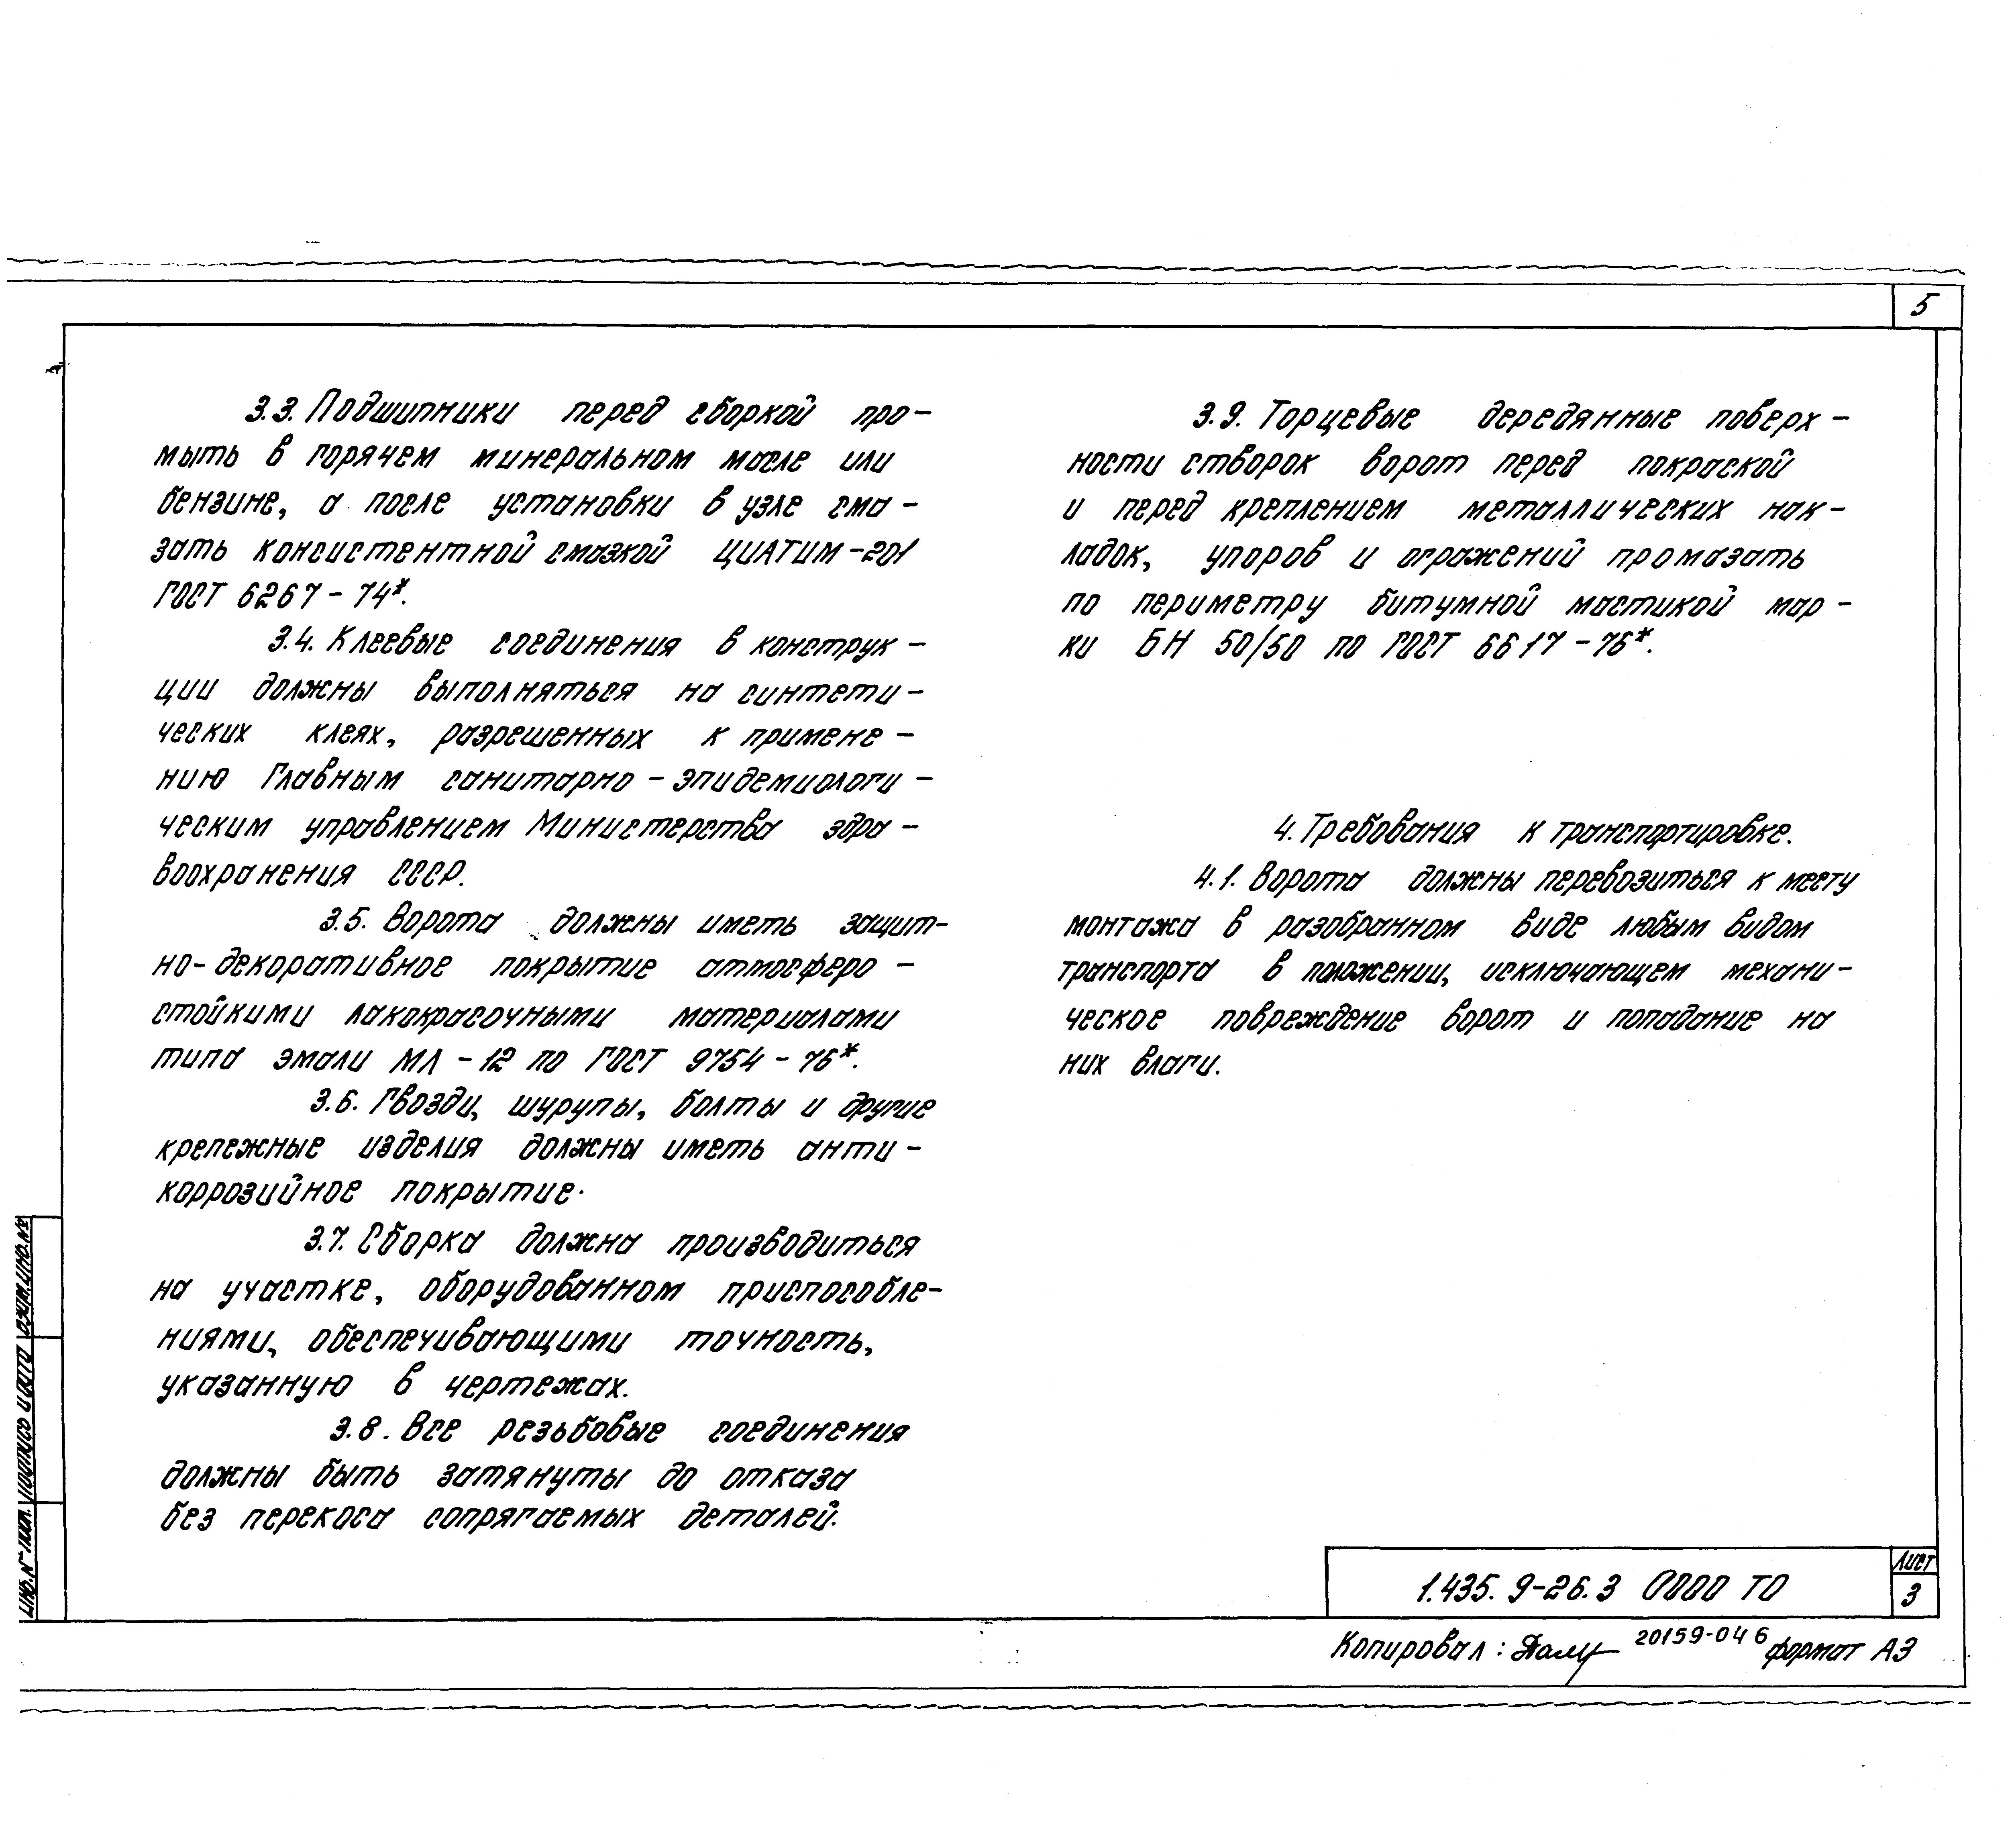 5
3.3. Подшипники перед сборкой про-
мыть в горячем минеральном масле или
бензине, а после установки в узле сма-
зать консистентной смазкой ЦИАТИМ-201
ГОСТ 6267-74*.
3.4. Клеевые соединения в конструк-
ции должны выполняться на синтети-
ческих клеях, разрешенных к примене-
нию Главным санитарно-эпидемиологи-
ческим управлением Министерства здра-
воохранения СССР.
3.5. Ворота должны иметь защит-
но-декоративное покрытие атмосферо-
стойкими лакокрасочными материалами
типа эмали МЛ-12 по ГОСТ 9754-76*.
3.6. Гвозди, шурупы, болты и другие
крепежные изделия должны иметь анти-
коррозийное покрытие.
3.7. Сборка должна производиться
на участке, оборудованном приспособле-
ниями, обеспечивающими точность,
указанную в чертежах.
3.8. Все резьбовые соединения
должны быть затянуты до отказа
без перекоса сопрягаемых деталей.
3.9. Торцевые деревянные поверх-
ности створок ворот перед покраской
и перед креплением металлических нак-
ладок, упоров и огражений промазать
по периметру битумной мастикой мар-
ки БН 50/50 по ГОСТ 6617-76*.
4. Требования к транспортировке.
4.1. Ворота должны перевозиться к месту
монтажа в разобранном виде любым видом
транспорта в положении, исключающем механи-
ческое повреждение ворот и попадание на
них влаги.
Инв. № подл. Подпись и дата Взам. инв. №
1.435.9-26.3 0000 ТО
Лист
3
Копировал: 20159-04 6 формат А3